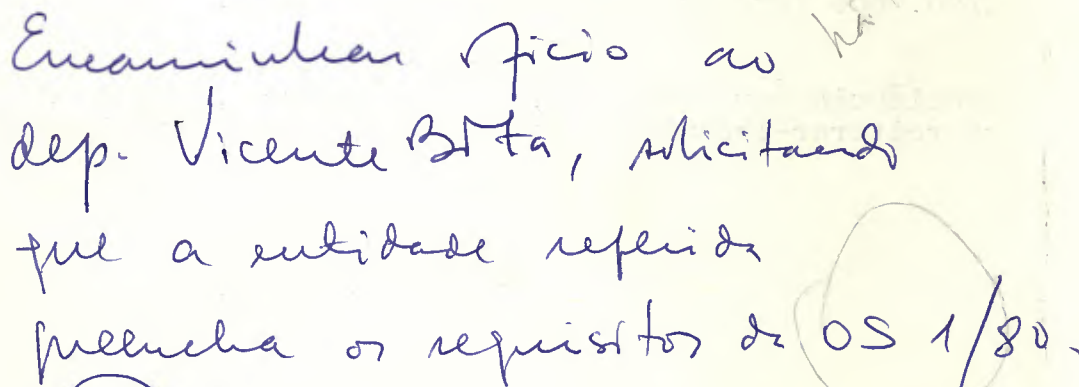 Encaminhar ofício ao
dep. Vicente Botta, solicitando
que a entidade referida
preencha os requisitos da OS 1/80.